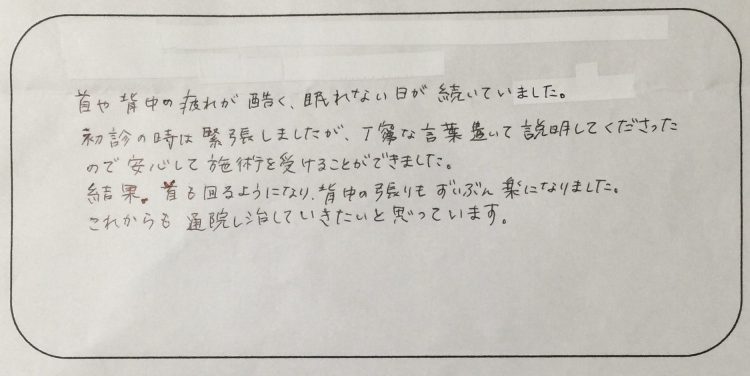 首や背中の疲れが酷く、眠れない日が続いていました。
初診の時は緊張しましたが、丁寧な言葉遣いで説明してくださった
ので安心して施術を受けることができました。
結果、首も回るようになり、背中の張りもずいぶん楽になりました。
これからも通院し治していきたいと思っています。